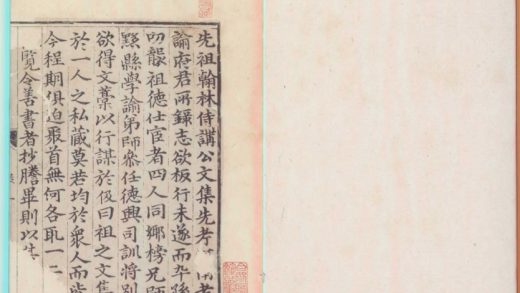 先祖翰林侍講公文集先考
諭府君所錄志欲板行未遂而卒孫
叨襲祖德仕宦者四人同鄉榜兄師
黟縣學諭弟師叅任德興司訓將別
欲得文藁以行謀於伋曰祖之文集
於一人之私藏莫若均於衆人而
今程期俱迫聚首無何各取一二
覽令善書者抄謄畢則以